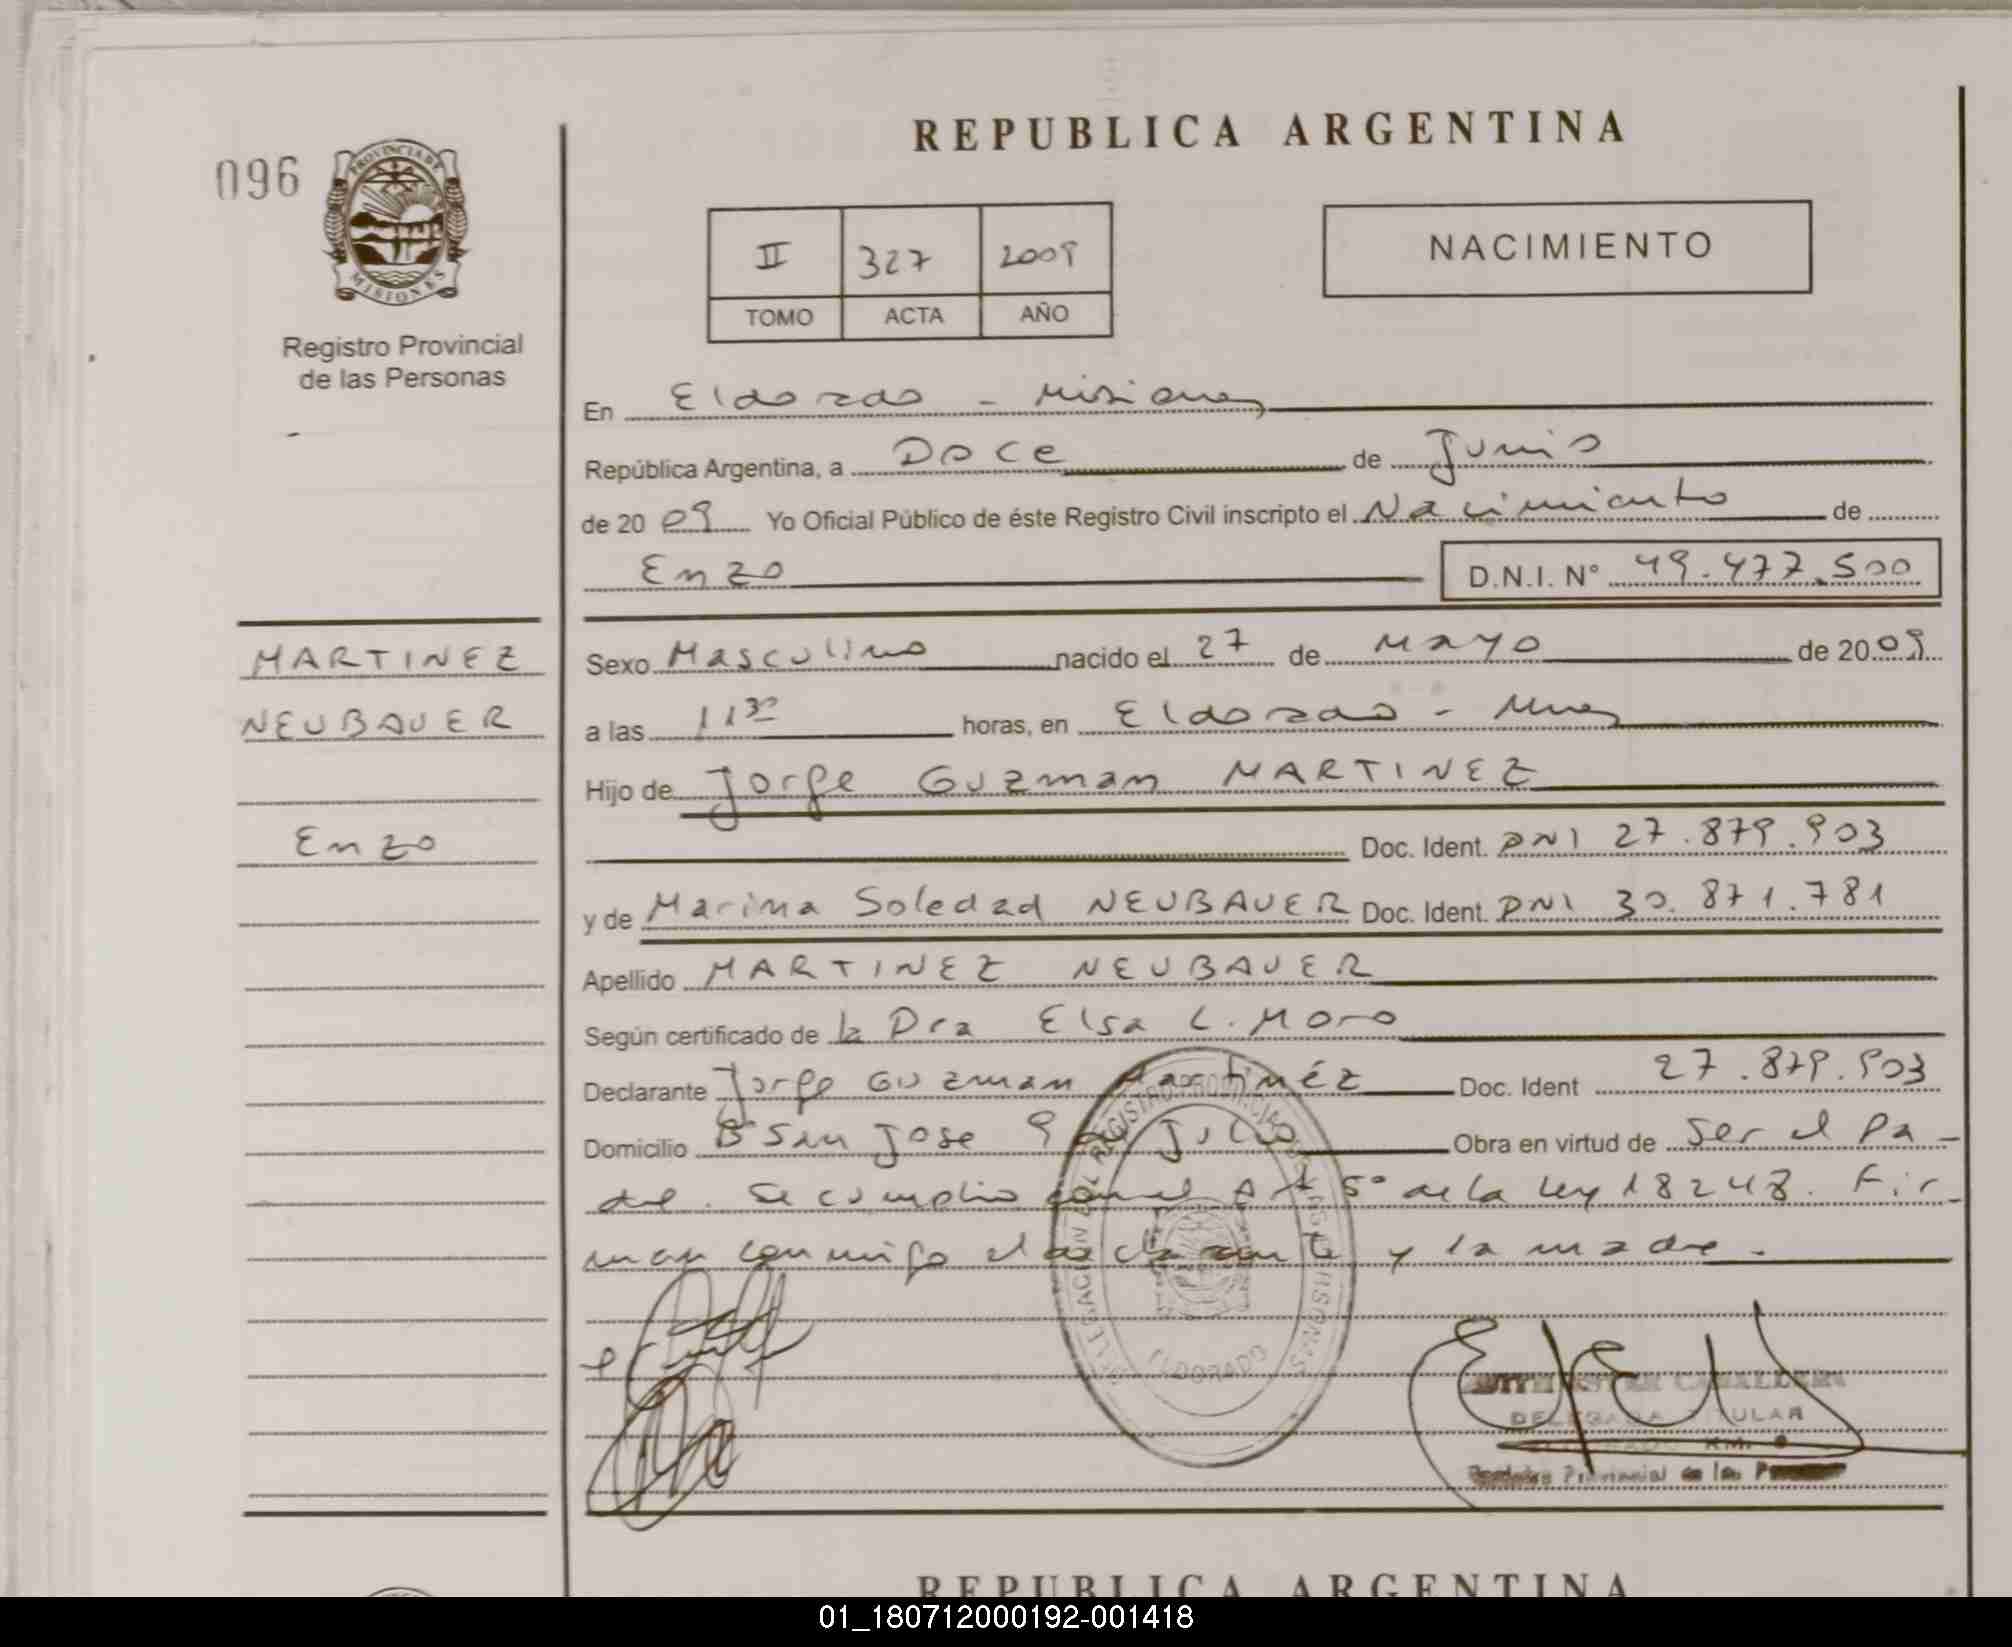 REPUBLICA ARGENTINA
096
PROVINCIA DE
MISIONES
Registro Provincial
de las Personas
II 327 2009
TOMO ACTA AÑO
NACIMIENTO
En Eldorado - Misiones
República Argentina, a Doce de Junio
de 2009 Yo Oficial Público de éste Registro Civil inscripto el Nacimiento de
Enzo D.N.I. N° 49.477.500
MARTINEZ
NEUBAUER
Enzo
Sexo Masculino nacido el 27 de Mayo de 2009
a las 11 30 horas, en Eldorado - Mnes
Hijo de Jorge Guzman MARTINEZ
Doc. Ident. DNI 27.879.903
y de Marina Soledad NEUBAUER Doc. Ident. DNI 30.871.781
Apellido MARTINEZ NEUBAUER
Según certificado de la Dra Elsa L. Moro
Declarante Jorge Guzman Martinéz Doc. Ident 27.879.903
Domicilio B° San Jose 9 de Julio Obra en virtud de ser el pa-
dre. Se cumplio con el Art 5° de la Ley 18248. Fir-
man conmigo el declarante y la madre.
DELEGACION DEL REGISTRO PROVINCIAL DE LAS PERSONAS
ELDORADO
DELEGADA TITULAR
ELDORADO KM.
Registro Provincial de las Personas
REPUBLICA ARGENTINA
01_180712000192-001418